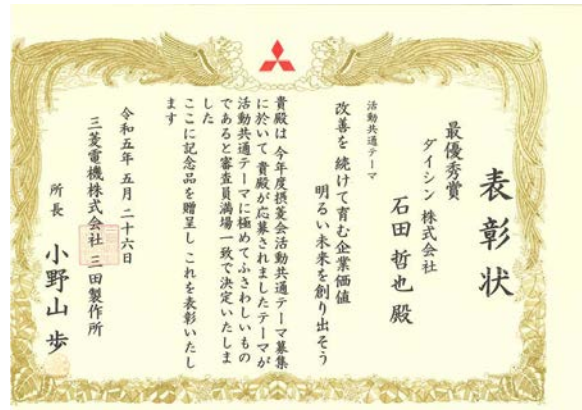 表彰状
最優秀賞
ダイシン株式会社
石田 哲也 殿
活動共通テーマ
改善を 続けて育む企業価値
明るい未来を創り出そう
貴殿は 今年度摂菱会活動共通テーマ募集
に於いて 貴殿が応募されましたテーマが
活動共通テーマに極めてふさわしいもの
であると審査員満場一致で決定いたしま
した
ここに記念品を贈呈し これを表彰いたし
ます
令和五年五月二十六日
三菱電機株式会社 三田製作所
所長 小野山 歩